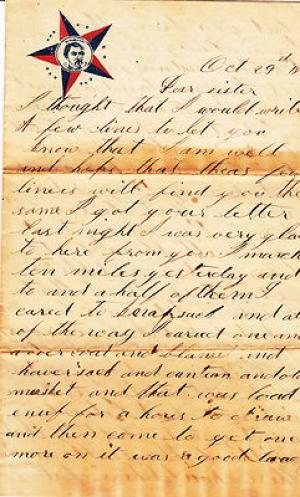 Oct 29th
Dear sister
I thought that I would write
A few lines to let you
know that I am well
and hope that theas few
lines will find you the
same I got your letter
last night I was very glad
to here from you I march
ten miles yesterday and
to and a half of them I
cared to
of the way I caried one
overcoat and and
haversack and cantean and
musket and that was load
enuf for a hors to draw
and then come to get one
more on it was a good